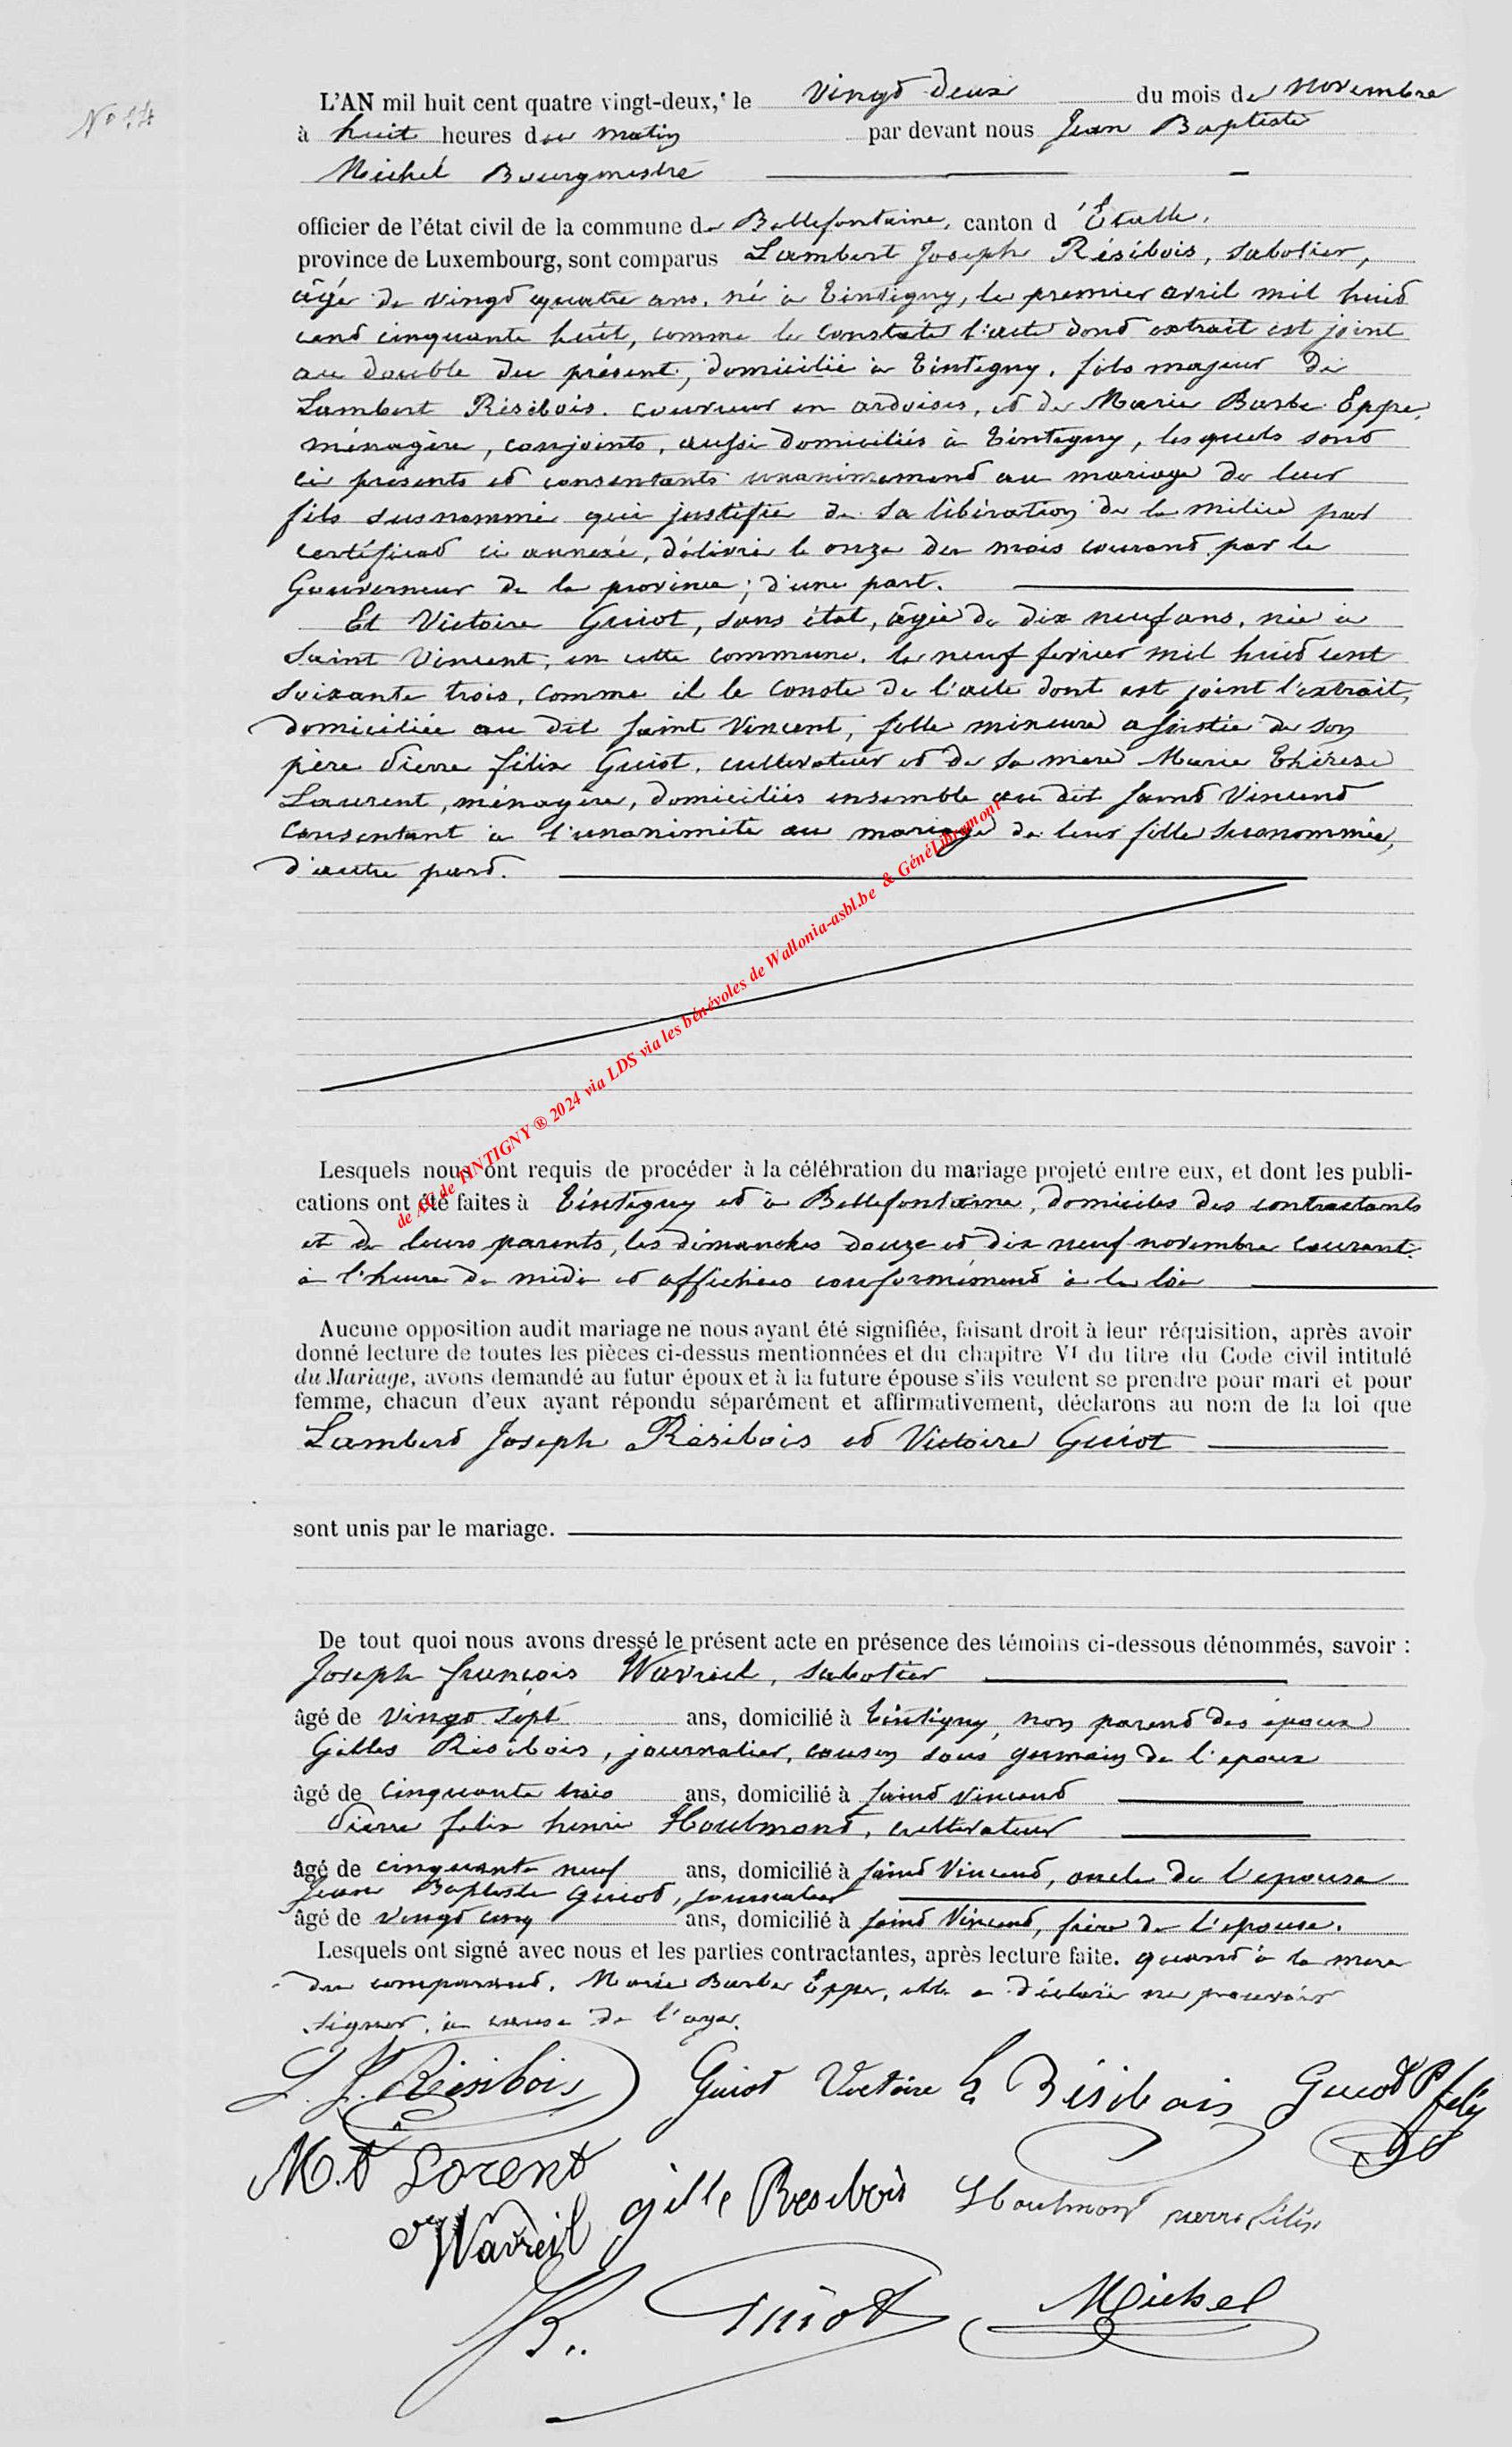 No 14
L'AN mil huit cent quatre vingt-deux, le vingt deux du mois de novembre
à huit heures du matin par devant nous Jean Baptiste
Michel Bourgmestre
officier de l'état civil de la commune de Bellefontaine, canton d'Etalle,
province de Luxembourg, sont comparus Lambert Joseph Résibois, sabotier,
âgé de vingt quatre ans, né à Tintigny, le premier avril mil huit
cent cinquante huit, comme le constate l'acte dont extrait est joint
au double du présent, domicilié à Tintigny, fils majeur de
Lambert Résibois, couvreur en ardoises, et de Marie Barbe Eppe,
ménagère, conjoints, aussi domiciliés à Tintigny, lesquels sont
ci présents et consentants unanimement au mariage de leur
fils susnommé qui justifie de sa libération de la milice par
certificat ci annexé, délivré le onze du mois courant par le
Gouverneur de la province; d'une part.
Et Victoire Guiot, sans état, âgée de dix neuf ans, née à
Saint Vincent, en cette commune, le neuf fevrier mil huit cent
soixante trois, comme il le conste de l'acte dont est joint l'extrait,
domiciliée au dit Saint Vincent, fille mineure assistée de son
père Pierre Félix Guiot, cultivateur et de sa mère Marie Thérèse
Laurent, ménagère, domiciliés ensemble au dit Saint Vincent
consentant à l'unanimité au mariage de leur fille susnommée,
d'autre part.
de AC de TINTIGNY ® 2024 via LDS via les bénévoles de Wallonia-asbl.be & GénéLibramont
Lesquels nous ont requis de procéder à la célébration du mariage projeté entre eux, et dont les publi-
cations ont été faites à Tintigny et à Bellefontaine, domiciles des contractants
et de leurs parents, les dimanches douze et dix neuf novembre courant.
à l'heure de midi et affichées conformément à la loi
Aucune opposition audit mariage ne nous ayant été signifiée, faisant droit à leur réquisition, après avoir
donné lecture de toutes les pièces ci-dessus mentionnées et du chapitre VI du titre du Code civil intitulé
du Mariage, avons demandé au futur époux et à la future épouse s'ils veulent se prendre pour mari et pour
femme, chacun d'eux ayant répondu séparément et affirmativement, déclarons au nom de la loi que
Lambert Joseph Résibois et Victoire Guiot
sont unis par le mariage.
De tout quoi nous avons dressé le présent acte en présence des témoins ci-dessous dénommés, savoir :
Joseph françois Wavreil, sabotier
âgé de vingt sept ans, domicilié à Tintigny, non parent des époux
Gilles Résibois, journalier, cousin sous germain de l'epoux
âgé de cinquante trois ans, domicilié à Saint Vincent
Pierre felix henri Houlmont, cultivateur
âgé de cinquante neuf ans, domicilié à Saint Vincent, oncle de l'epouse
Jean Baptiste Guiot, journalier
âgé de vingt cinq ans, domicilié à Saint Vincent, frère de l'epouse.
Lesquels ont signé avec nous et les parties contractantes, après lecture faite. quant à la mere
du comparant, Marie Barbe Eppe, elle a déclaré ne pouvoir
signer, à cause de l'age.
L. J. Résibois Guiot Victoire L Résibois Guiot P felix
M. t Lorent
Wavreil gille Resibois Houlmont pierre félix
J B. Guiot Michel